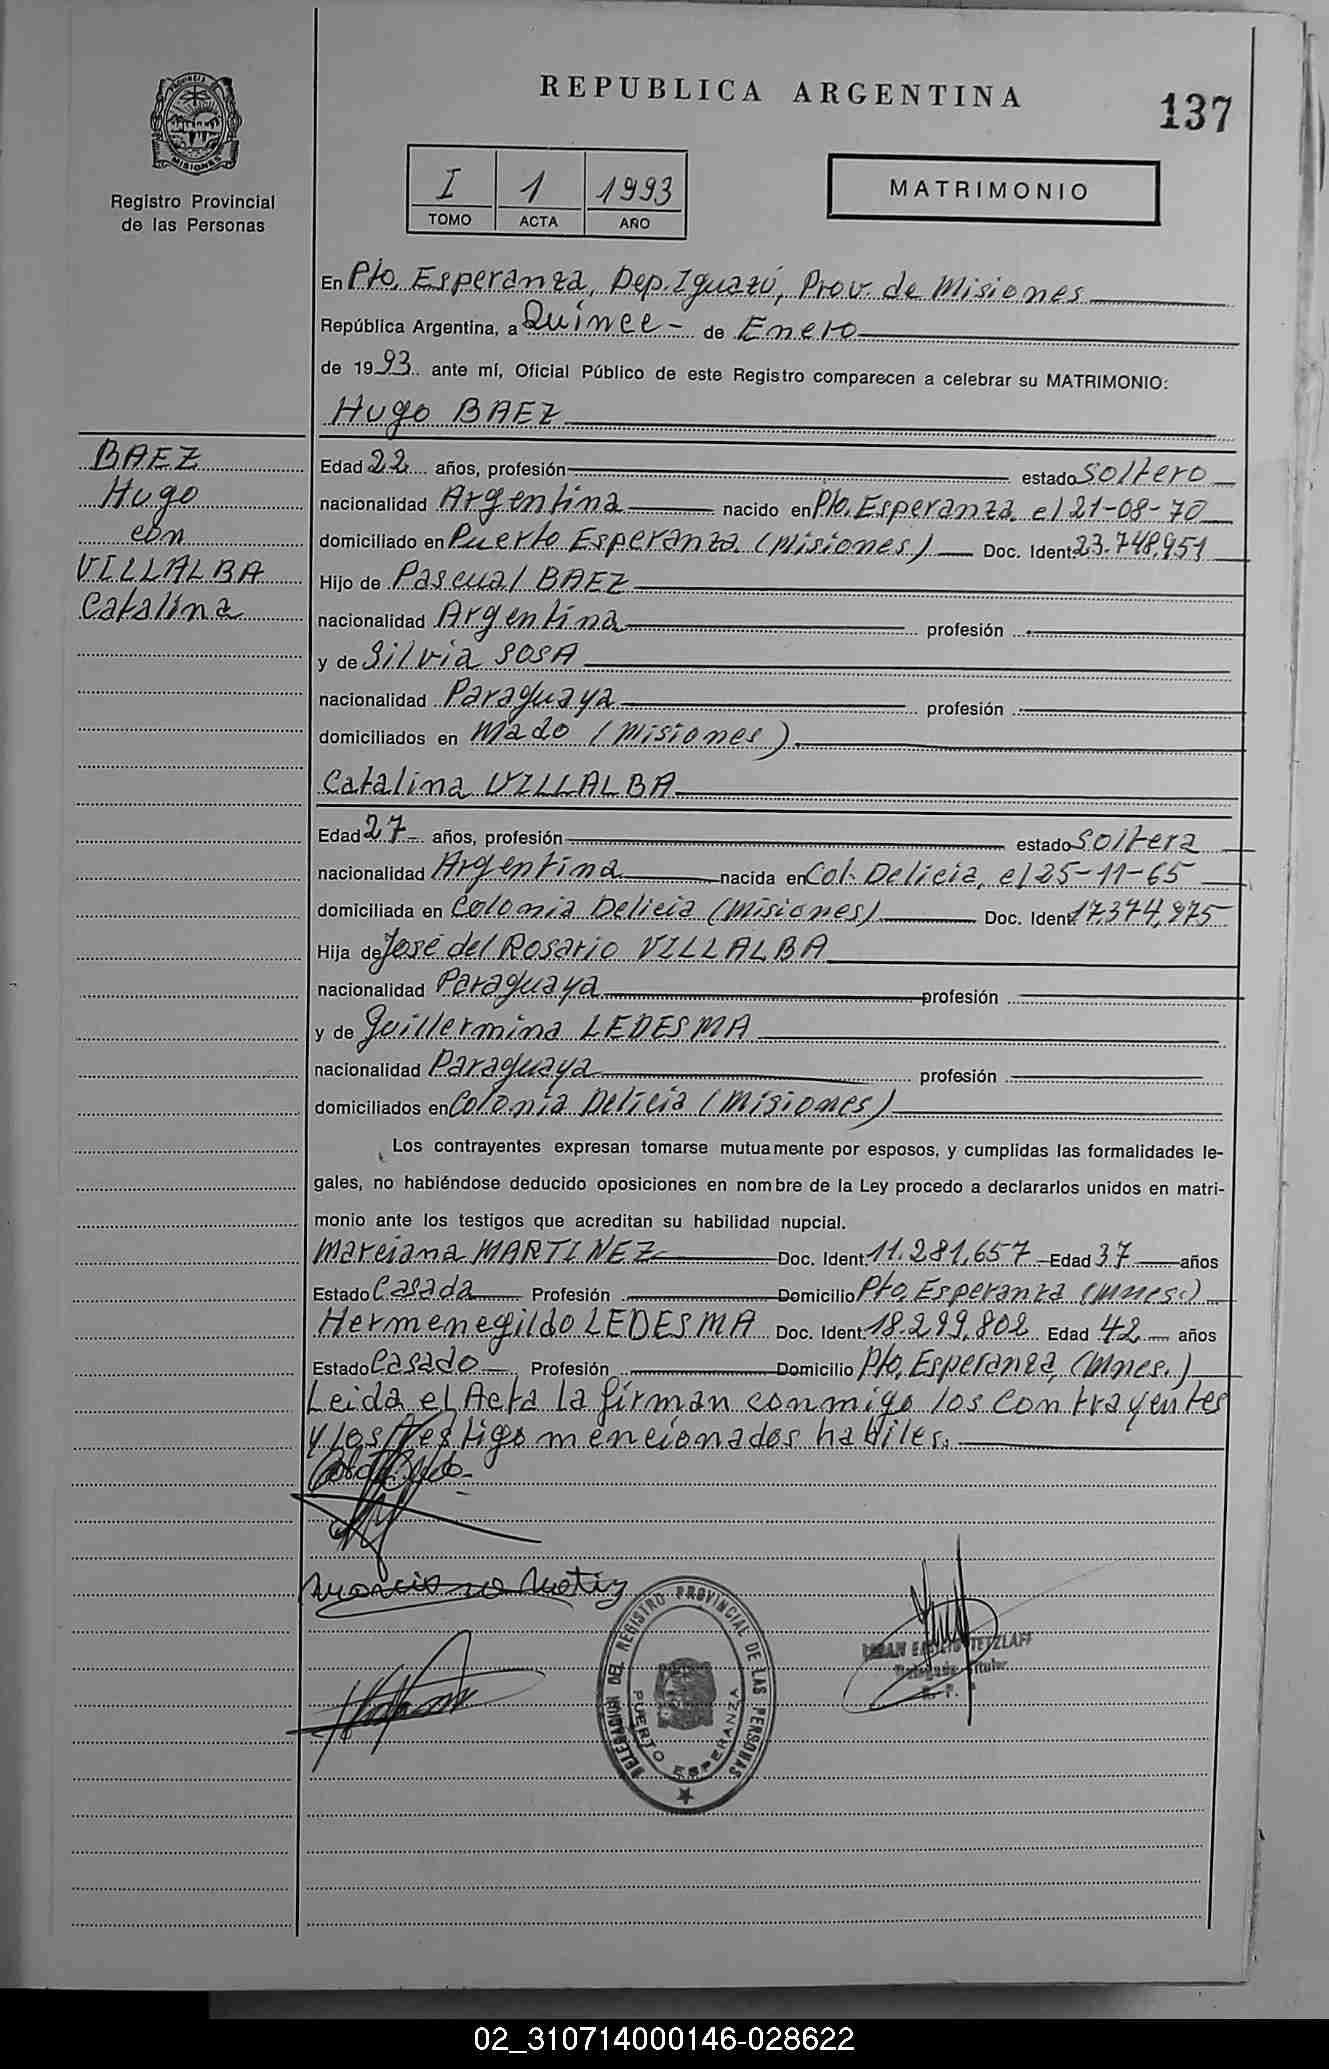 REPUBLICA ARGENTINA
137
PROVINCIA
MISIONES
Registro Provincial
de las Personas
I 1 1993
TOMO ACTA AÑO
MATRIMONIO
En Pto. Esperanza, Dep. Iguazú, Prov. de Misiones
República Argentina, a Quince - de Enero
de 1993 ante mí, Oficial Público de este Registro comparecen a celebrar su MATRIMONIO:
Hugo BAEZ
BAEZ
Hugo
con
VILLALBA
Catalina
Edad 22 años, profesión estado soltero
nacionalidad Argentina nacido en Pto. Esperanza, el 21-08-70
domiciliado en Puerto Esperanza (Misiones) Doc. Ident. 23.748.951
Hijo de Pascual BAEZ
nacionalidad Argentina profesión
y de Silvia SOSA
nacionalidad Paraguaya profesión
domiciliados en Mado (Misiones)
Catalina VILLALBA
Edad 27 años, profesión estado soltera
nacionalidad Argentina nacida en Col. Delicia, el 25-11-65
domiciliada en Colonia Delicia (Misiones) Doc. Ident. 17.374.975
Hija de José del Rosario VILLALBA
nacionalidad Paraguaya profesión
y de Guillermina LEDESMA
nacionalidad Paraguaya profesión
domiciliados en Colonia Delicia (Misiones)
Los contrayentes expresan tomarse mutuamente por esposos, y cumplidas las formalidades le-
gales, no habiéndose deducido oposiciones en nombre de la Ley procedo a declararlos unidos en matri-
monio ante los testigos que acreditan su habilidad nupcial.
Marciana MARTINEZ Doc. Ident. 11.281.657 Edad 37 años
Estado Casada Profesión Domicilio Pto. Esperanza (Mnes.)
Hermenegildo LEDESMA Doc. Ident. 18.299.802 Edad 42 años
Estado Casado Profesión Domicilio Pto. Esperanza, (Mnes.)
Leida el Acta la firman conmigo los contrayentes
y los Testigo mencionados habiles.
DELEGACION DEL REGISTRO PROVINCIAL DE LAS PERSONAS
PUERTO ESPERANZA
TETZLAFF
Delegado Titular
02_310714000146-028622